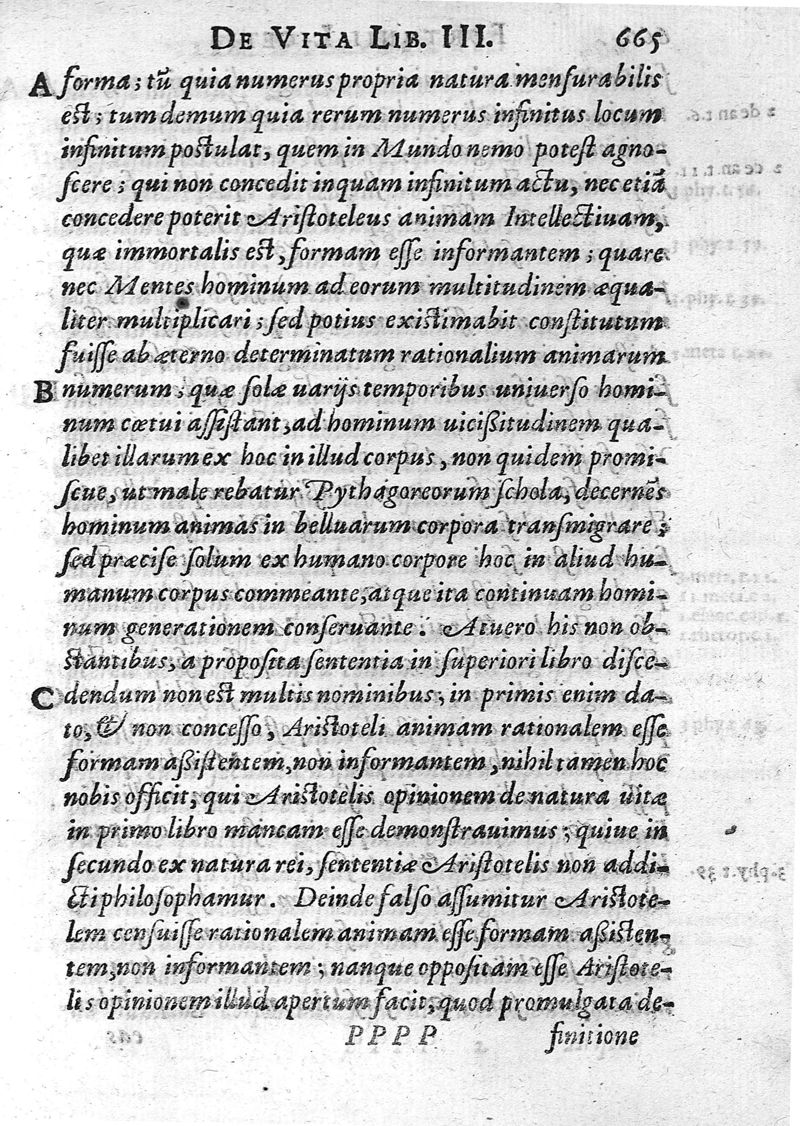 DE VITA LIB. III. 665
A forma; tũ quia numerus propria natura mensurabilis
est; tum demum quia rerum numerus infinitus locum
infinitum postulat, quem in Mundo nemo potest agno-
scere; qui non concedit inquam infinitum actu, nec etiã
concedere poterit Aristoteleus animam Intellectiuam,
quæ immortalis est, formam esse informantem; quare
nec Mentes hominum ad eorum multitudinem æqua-
liter multiplicari; sed potius existimabit constitutum
fuisse ab æterno determinatum rationalium animarum
B numerum; quæ solæ uarijs temporibus uniuerso homi-
num cœtui assistant, ad hominum uicißitudinem qua-
libet illarum ex hoc in illud corpus, non quidem promi-
scue, ut male rebatur Pythagoreorum schola, decernẽs
hominum animas in belluarum corpora transmigrare;
sed præcise solum ex humano corpore hoc in aliud hu-
manum corpus commeante, atque ita continuam homi-
num generationem conseruante. At uero his non ob-
stantibus, a proposita sententia in superiori libro disce-
C dendum non est multis nominibus; in primis enim da-
to, & non concesso, Aristoteli animam rationalem esse
formam aßistentem, non informantem, nihil tamen hoc
nobis officit, qui Aristotelis opinionem de natura uitæ
in primo libro mancam esse demonstrauimus; quiue in
secundo ex natura rei, sententiæ Aristotelis non addi-
cti philosophamur. Deinde falso assumitur Aristote-
lem censuisse rationalem animam esse formam aßisten-
tem, non informantem; nanque oppositam esse Aristote-
lis opinionem illud apertum facit, quod promulgata de-
PPPP finitione